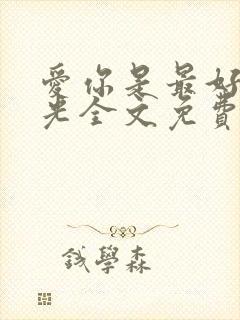 愛你是最好
光全文免費
錢學森